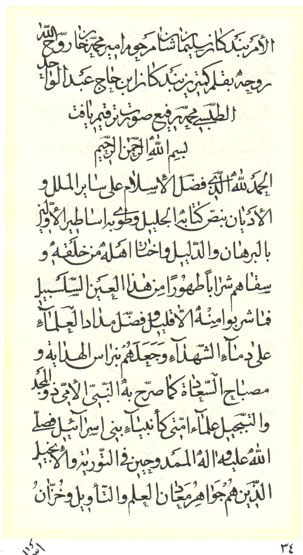 الأمر بندكان سليمانشأ مرحوم امير محمد خان روح الله
روحه بقلم كمترين بندكان ابن حاج عبد الواحد
الطبسي محمد رفيع صورت ترقيم يافت
بسم الله الرحمن الرحيم
الحمد لله الذي فضل الأسلام على ساير الملل و
الأديان بنص كتابه الجليل وطوى به اساطير الأولين
بالبرهان والدليل واختار اهله من خلقه و
سقاهم شرابا طهورا من هذا العين السلسبيل
فما شربوا منه الا قليل وفضل مداد العلماء
على دماء الشهداء وجعلهم نبراس الهداية و
مصباح السعادة كما صرح به النبي الأمي ذو المجد
والتبجيل علماء امتي كأنبياء بني اسرائيل فصلى
الله عليه و اله الممدوحين في التورية والأنجيل
الذين هم جواهر معادن العلم والتأويل وخزان
٣٤